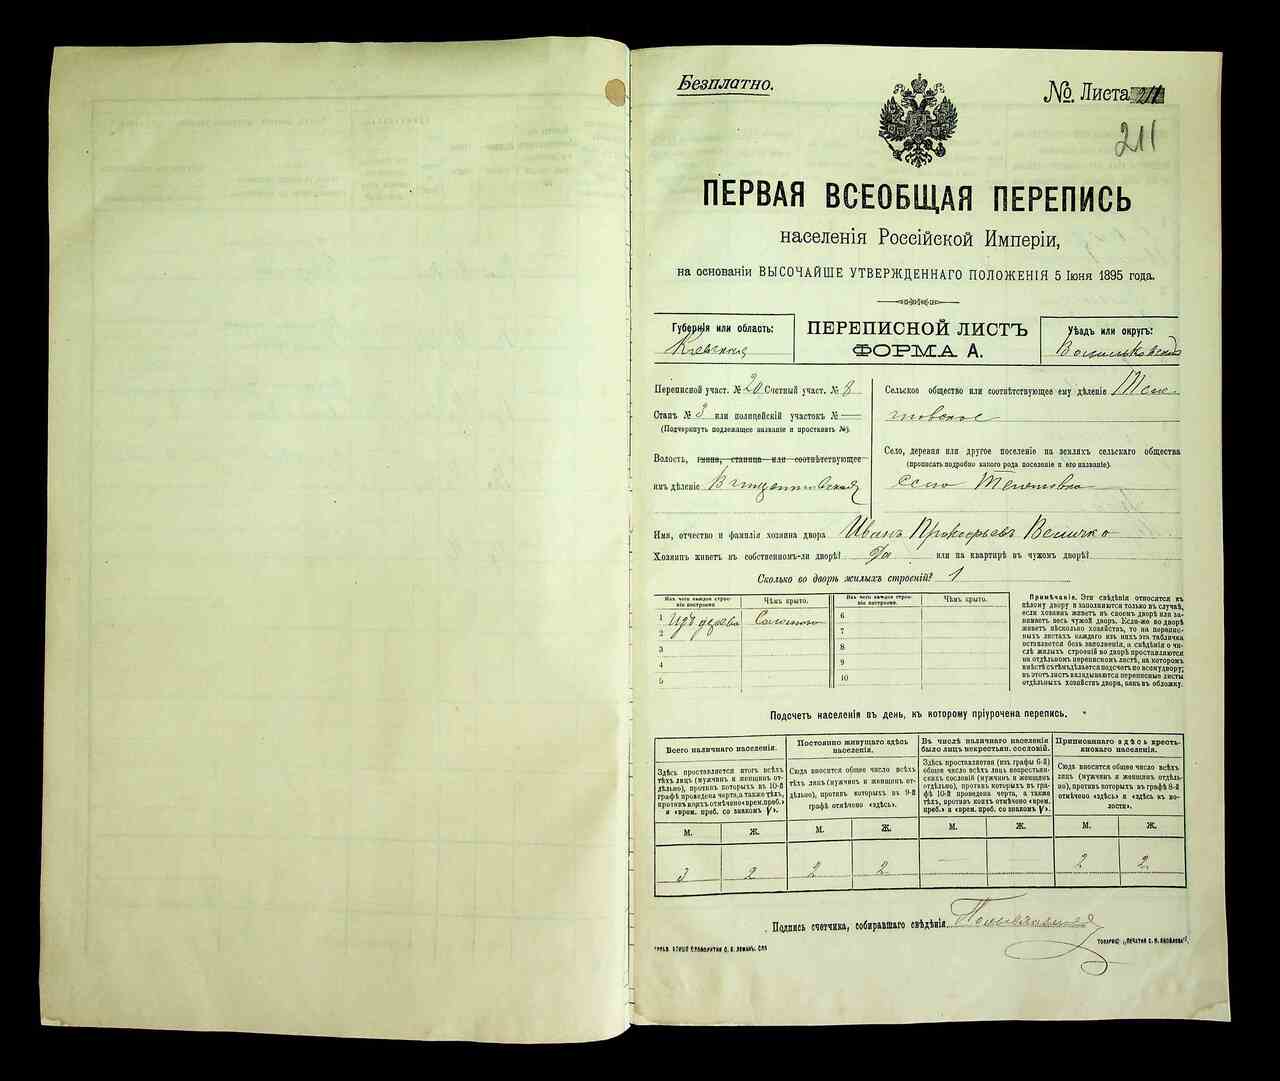 Безплатно.
№ Листа 211
211
ПЕРВАЯ ВСЕОБЩАЯ ПЕРЕПИСЬ
населенія Россійской Имперіи,
на основаніи ВЫСОЧАЙШЕ УТВЕРЖДЕННАГО ПОЛОЖЕНІЯ 5 Іюня 1895 года.
Губернія или область:
Кіевская
ПЕРЕПИСНОЙ ЛИСТЪ
ФОРМА А.
Уѣздъ или округъ:
Васильковскій
Переписной участ. № 20 Счетный участ. № 8
Станъ № 3 или полицейскій участокъ № —
(Подчеркнуть подлежащее названіе и проставить №).
Волость, гмина, станица или соотвѣтствующее
имъ дѣленіе
Сельское общество или соотвѣтствующее ему дѣленіе
Село, деревня или другое поселеніе на земляхъ сельскаго общества
(прописать подробно какого рода поселеніе и его названіе).
село
Имя, отчество и фамилія хозяина двора Иванъ Прокофьевъ Величко
Хозяинъ живетъ въ собственномъ-ли дворѣ? Да или на квартирѣ въ чужомъ дворѣ?
Сколько во дворѣ жилыхъ строеній? 1
Изъ чего каждое строе-
ніе построено.
Чѣмъ крыто.
Изъ чего каждое строе-
ніе построено.
Чѣмъ крыто.
1 Изъ дерева Соломою
2
3
4
5
6
7
8
9
10
Примѣчаніе. Эти свѣдѣнія относятся къ
цѣлому двору и заполняются только въ случаѣ,
если хозяинъ живетъ въ своемъ дворѣ или за-
нимаетъ весь чужой дворъ. Если-же во дворѣ
живетъ нѣсколько хозяйствъ, то на перепис-
ныхъ листахъ каждаго изъ нихъ эта табличка
оставляется безъ заполненія, а свѣдѣнія о чи-
слѣ жилыхъ строеній во дворѣ проставляются
на отдѣльномъ переписномъ листѣ, на которомъ
вмѣстѣ съ тѣмъ дѣлается подсчетъ по всему двору;
въ этотъ листъ вкладываются переписные листы
отдѣльныхъ хозяйствъ двора, какъ въ обложку.
Подсчетъ населенія въ день, къ которому пріурочена перепись.
Всего наличнаго населенія.
Здѣсь проставляется итогъ всѣхъ
тѣхъ лицъ (мужчинъ и женщинъ от-
дѣльно), противъ которыхъ въ 10-й
графѣ проведена черта, а также тѣхъ,
противъ коихъ отмѣчено «врем. преб.»
и «врем. преб. со знакомъ V».
Постоянно живущаго здѣсь
населенія.
Сюда вносится общее число всѣхъ
тѣхъ лицъ (мужчинъ и женщинъ от-
дѣльно), противъ которыхъ въ 9-й
графѣ отмѣчено «здѣсь».
Въ числѣ наличнаго населенія
было лицъ некрестьян. сословій.
Здѣсь проставляется (изъ графы 6-й)
общее число всѣхъ лицъ некрестьян-
скихъ сословій (мужчинъ и женщинъ
отдѣльно), противъ которыхъ въ гра-
фѣ 10-й проведена черта, а также
тѣхъ, противъ коихъ отмѣчено «врем.
преб.» и «врем. преб. со знакомъ V».
Приписаннаго здѣсь кресть-
янскаго населенія.
Сюда вносится общее число всѣхъ
лицъ (мужчинъ и женщинъ отдѣль-
но), противъ которыхъ въ графѣ 8-й
отмѣчено «здѣсь» и «здѣсь къ во-
лости».
М. Ж. М. Ж. М. Ж. М. Ж.
3 2 2 2 — — 2 2
Подпись счетчика, собиравшаго свѣдѣнія